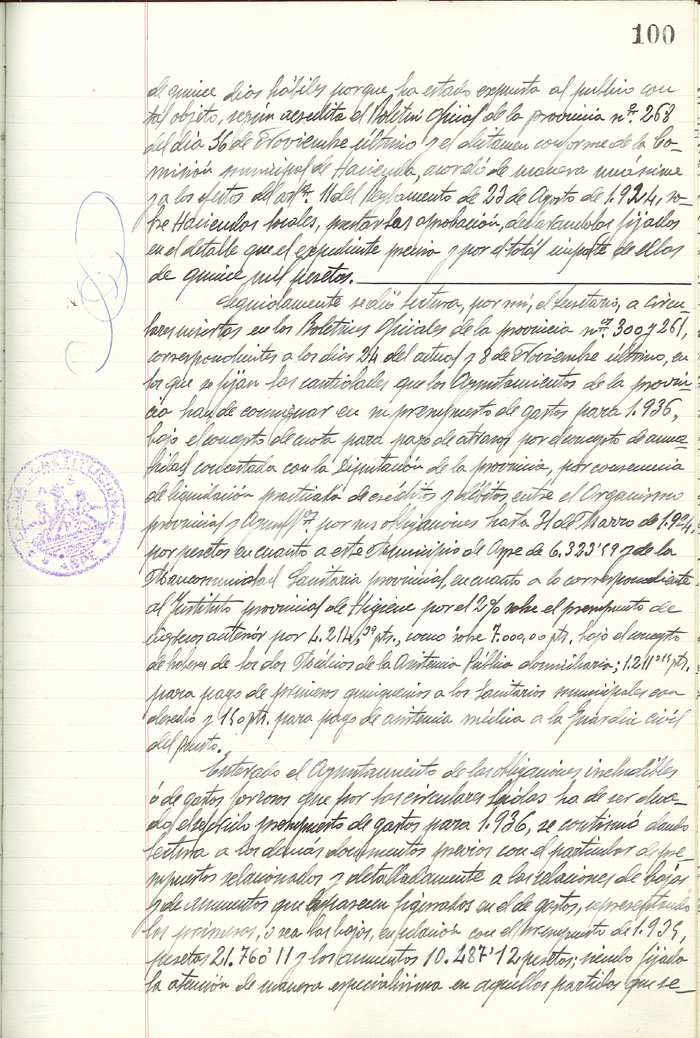 100
de quince días hábiles porque ha estado expuesta al público con
tal objeto, según acredita el Boletín Oficial de la provincia nº 268
del día 16 de Noviembre último y el dictamen conforme de la Co-
misión municipal de Hacienda, acordó de manera unánime
y a los efectos del artº. 11 del Reglamento de 23 de Agosto de 1.924, so-
bre Haciendas locales, prestarles aprobación, declarándolos fijados
en el detalle que el expediente precisa y por el total importe de ellos
de quince mil pesetas.
Seguidamente se dió lectura, por mí, el Secretario, a circu-
lares insertas en los Boletines Oficiales de la provincia nos. 300 y 261,
correspondientes a los días 24 del actual y 8 de Noviembre último, en
los que se fijan las cantidades que los Ayuntamientos de la provin-
cia han de consignar en su presupuesto de gastos para 1.936,
bajo el concepto de cuota para pago de atrasos por concepto de anua-
lidad concertada con la Diputación de la provincia, por consecuencia
de liquidación practicada de créditos y débitos entre el Organismo
provincial y Ayuntº por sus obligaciones hasta 31 de Marzo de 1.924.
por pesetas en cuanto a este Municipio de 6.323'59 y de la
Mancomunidad Sanitaria provincial, en cuanto a la correspondiente
al Instituto provincial de Higiene por el 2% sobre el presupuesto de
ingresos anterior por 4.214,39 pts., como sobre 7.000,00 pts. bajo el concepto
de haberes de los dos Médicos de la Asistencia Pública domiciliaria; 1.211 pts.
para pago de primeros quinquenios a los Sanitarios municipales con
derecho y 150 pts. para pago de asistencia médica a la Guardia civil
del puesto.
Enterado el Ayuntamiento de las obligaciones ineludibles
ó de gastos forzosos que por las circulares leídas ha de ser
do el presupuesto de gastos para 1.936, se continuó dando
lectura a los demás documentos previos con el particular de pre-
supuestos relacionados y detalladamente a las relaciones de bajas
y de aumentos que aparecen figurados en el de gastos, representando
las primeras, o sea las bajas, en relación con el Presupuesto de 1.935,
pesetas 21.760'11 y los aumentos 10.487'12 pesetas; siendo fijada
la atención de manera especialísima en aquellas partidas que se-